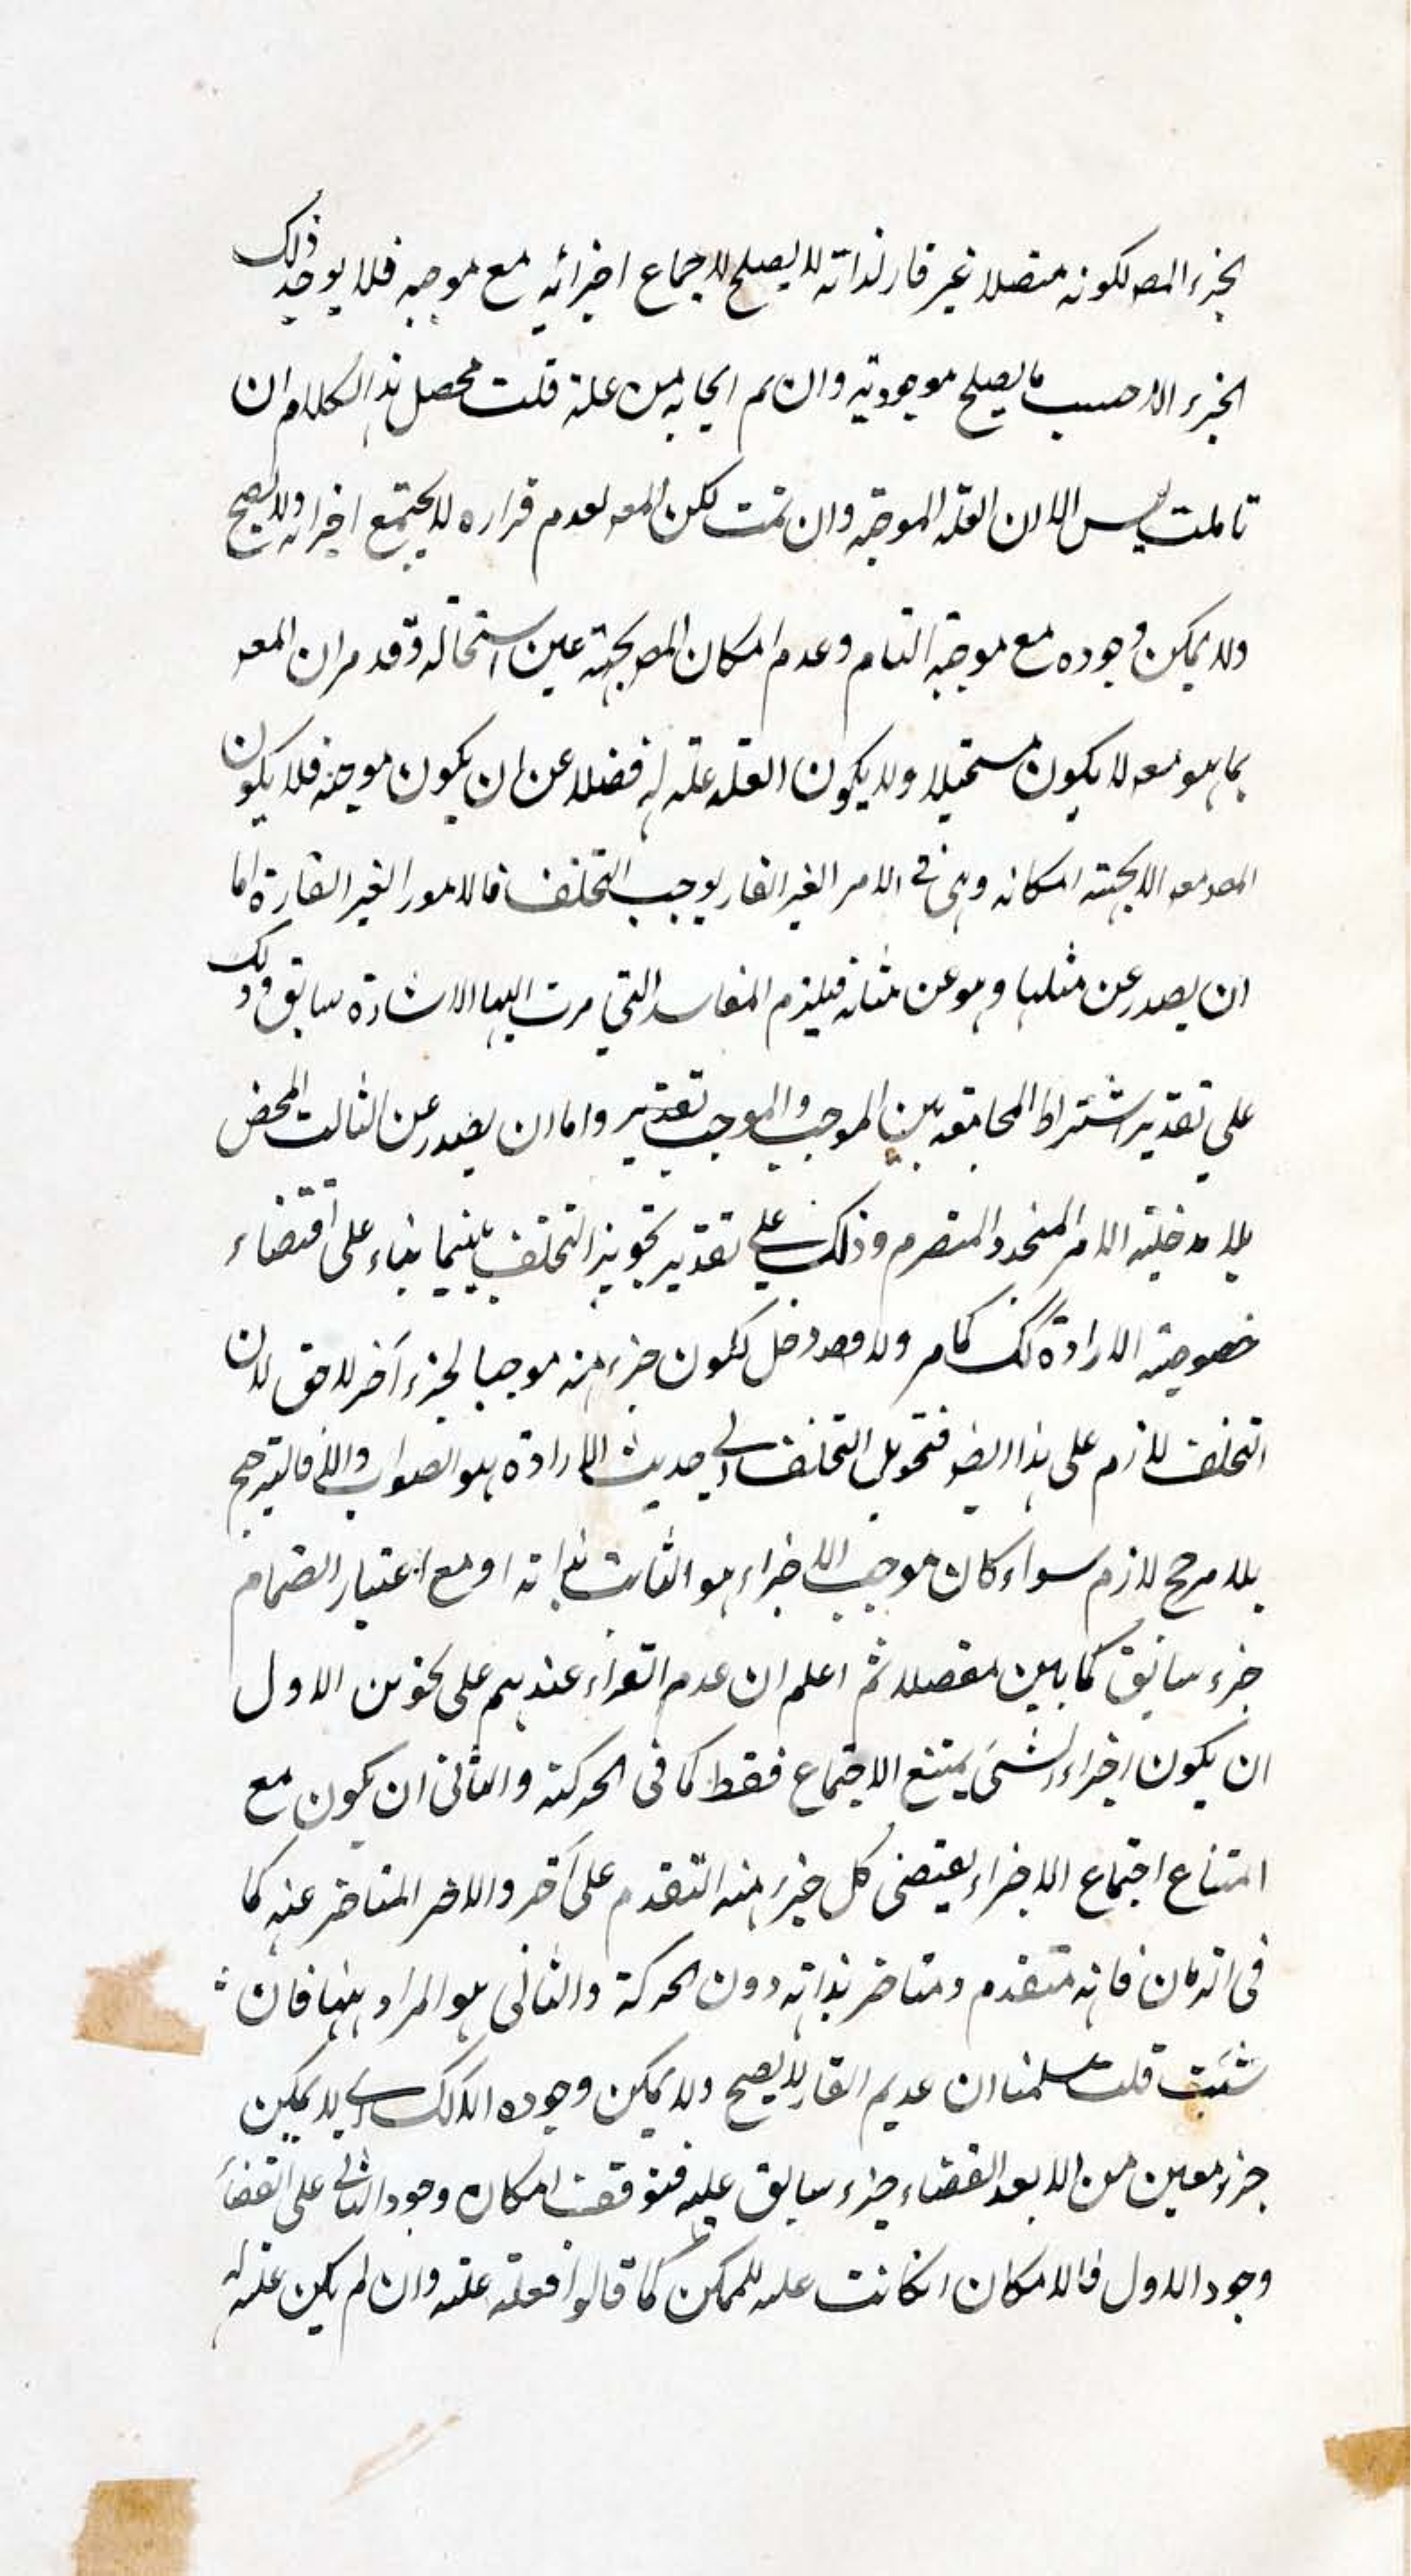 الجزء المعه لكونه متصلا غير قار لذاته لا يصلح لاجماع اجزائه مع موجبه فلا يوجد ذلك
الجزء الا حسب ما يصلح موجوديته وان تم ايجابه من علته قلت محصل هذا الكلام ان
تاملت ليس الا ان العلة الموجبه وان تمت لكن المعه لعدم قراره لا يجتمع اجزائه ولا يصح
ولا يمكن وجوده مع موجبه التام وعدم امكان المعه بجهته عين استحالته وقد مر ان المعه
بما هو معه لا يكون مستحيلا ولا يكون العلة علته له فضلا عن ان يكون موجبة فلا يكون
المعه معه الا بجهته امكانه وهي في الامر الغير القار يوجب التخلف فالامور الغير القارة اما
ان يصدر عن مثلها وهو عن مثله فيلزم المفاسد التي مرت اليها الاشارة سابق وذلك
على تقدير اشتراط المجامعه بين الموجب والموجب تقدير واما ان يصدر عن الثابت المحض
بلا مدخلية الامر المتجدد المتصرم وذلك على تقدير تجويز التخلف بينهما بناء على اقتضاء
خصوصية الارادة كك كما مر ولا دخل لكون جزء منه موجبا لجزء آخر لاحق لان
التخلف لازم على هذا ايضا فتحويل التخلف الى حديث الارادة هو الصواب والا فالترجيح
بلا مرجح لازم سواء كان موجب الاجزاء هو الثابت بذاته او مع اعتبار انضمام
جزء سابق كما بين مفصلا ثم اعلم ان عدم القراء عندهم على نحوين الاول
ان يكون اجزاء الشئ يمتنع الاجتماع فقط كما في الحركة والثاني ان يكون مع
امتناع اجتماع الاجزاء يقتضي كل جزء منه التقدم على آخر والاخر المتاخر عنه كما
في الزمان فانه متقدم ومتاخر بذاته دون الحركة والثاني هو المراد ههنا فان
شئت قلت سلمنا ان عديم القار لا يصح ولا يمكن وجوده الا كك اي لا يمكن
جزء معين من الا بعد انقضاء جزء سابق عليه فتوقف امكان وجود الثاني على انقضاء
وجود الاول فالامكان انكانت علته للممكن كما قالوا فعلته علته وان لم يكن علته له